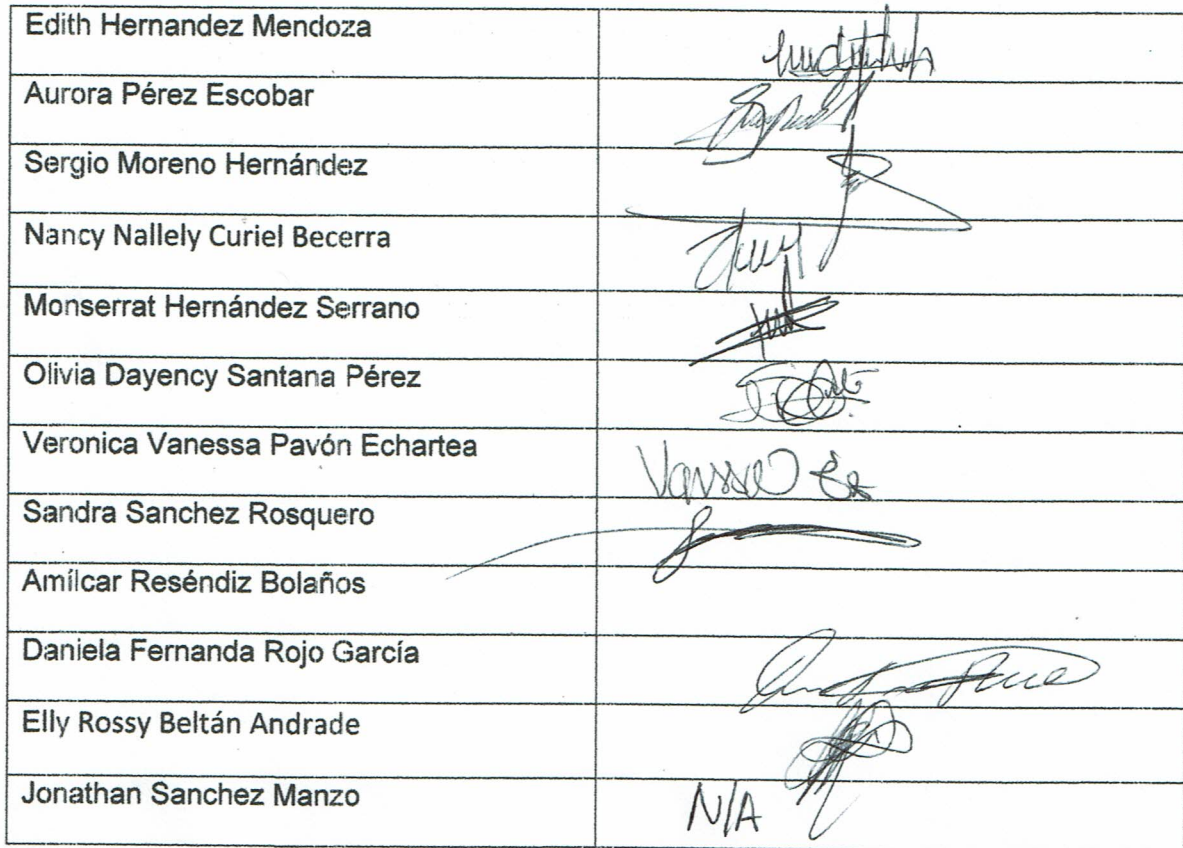 Edith Hernandez Mendoza
Aurora Pérez Escobar
Sergio Moreno Hernández
Nancy Nallely Curiel Becerra
Monserrat Hernández Serrano
Olivia Dayency Santana Pérez
Veronica Vanessa Pavón Echartea
Sandra Sanchez Rosquero
Amílcar Reséndiz Bolaños
Daniela Fernanda Rojo García
Elly Rossy Beltán Andrade
Jonathan Sanchez Manzo N/A